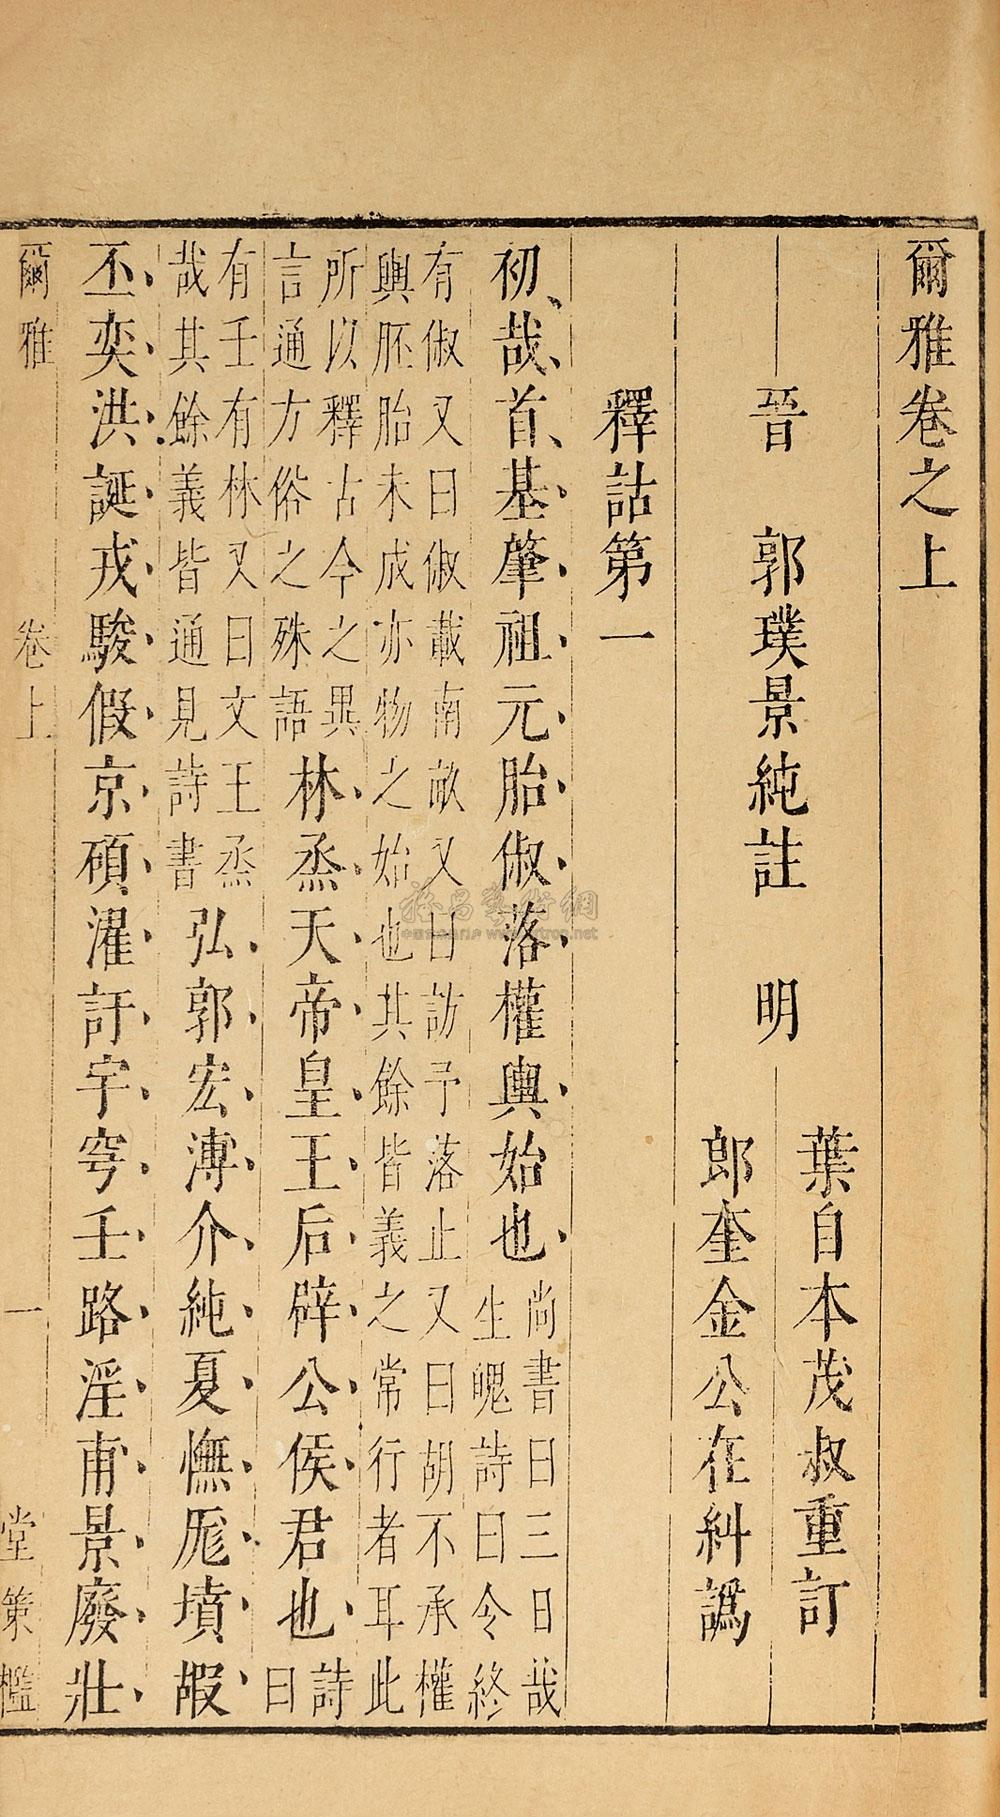 爾雅卷之上
晉　郭璞景純註　明
葉自本茂叔重訂
郎奎金公在糾譌
釋詁第一
初、哉、首、基、肇、祖、元、胎、俶、落、權輿、始也、
尚書曰三日哉
生魄詩曰令終
有俶又曰俶載南畝又曰訪予落止又曰胡不承權
輿胚胎未成亦物之始也其餘皆義之常行者耳此
所以釋古今之異
言通方俗之殊語
林、烝、天、帝、皇、王、后、辟、公、侯、君也、
詩
曰
有壬有林又曰文王烝
哉其餘義皆通見詩書
弘、郭、宏、溥、介、純、夏、憮、厖、墳、嘏、
丕、奕、洪、誕、戎、駿、假、京、碩、濯、訏、宇、穹、壬、路、淫、甫、景、廢、壯、
爾雅　卷上　一　堂策檻
雅昌藝術網
www.artron.net